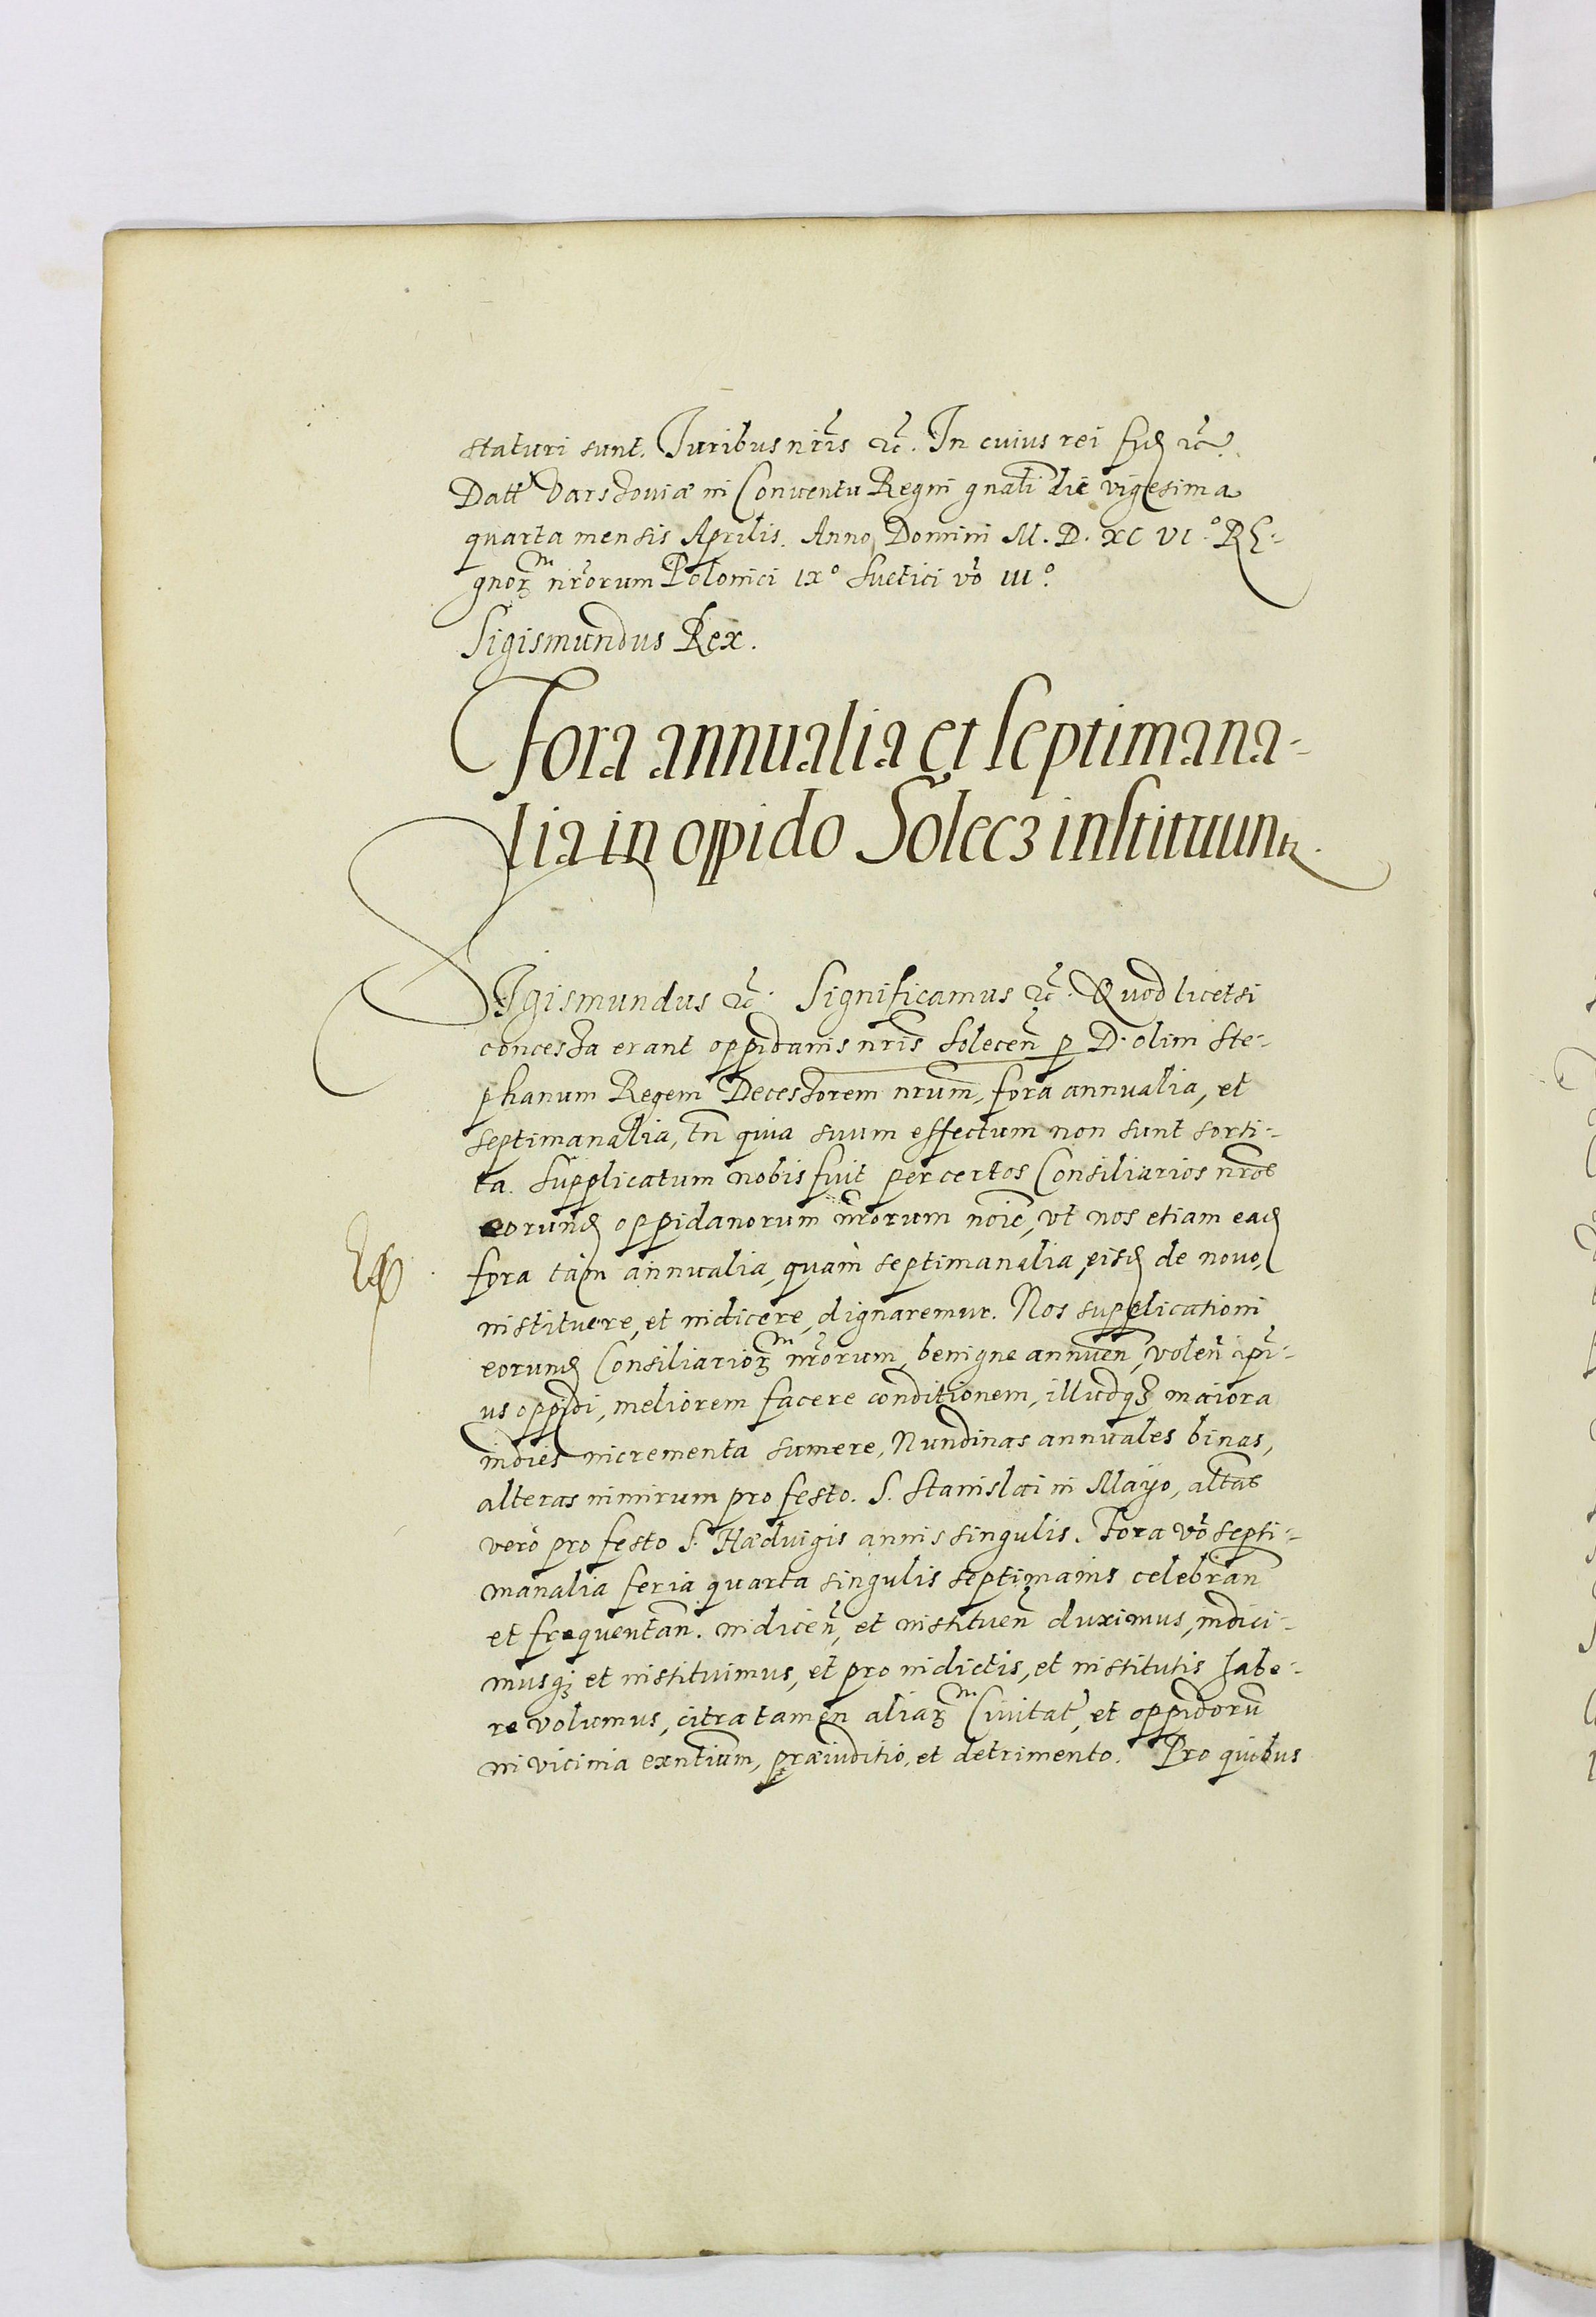 staturi sunt. Juribus nr̃is &c̃. In cuius rei fid &c̃.
Datt Varssoviæ in Conventu Regni gnãli die vigesima
quarta mensis Aprilis. Anno Domini M. D. XC VI.º RE-
gnorꝫ nr̃orum Polonici IXº Suetici vō IIIº.
Sigismundus Rex.
Fora annualia et septimana-
lia in oppido Solecz instituunt̃.
SIgismundus &c̃. Significamus &c̃. Quod licet si
concessa erant oppidanis nr̃is Solecen̄ p D. olim Ste-
phanum Regem Decessorem nrum̄, fora annualia, et
septimanalia, tn̄ quia suum effectum non sunt sorti-
ta. Supplicatum nobis fuit per certos Consiliarios nr̄os
eorund oppidanorum nr̃orum noīe, ut nos etiam ead
fora tàm annualia, quàm septimanalia, eisd de novo,
instituere, et indicere, dignaremur. Nos supplicationi
eorund Consiliariorꝫ nr̃orum, benigne annuen̄, volen̄ ipi-
us oppidi, meliorem facere conditionem, illudqꝫ maiora
indies incrementa sumere, Nundinas annuales binas,
alteras nimirum pro festo. S. Stanislai in Mayo, alt̄as
verò pro festo S. Hædvigis annis singulis. Fora vō septi-
manalia feria quarta singulis septimanis celebran̄
et frequentan̄. indicen̄, et instituen̄ duximus, indici-
musqꝫ et instituimus, et pro indictis, et institutis habe-
re volumus, citra tamen aliarꝫ Civitat̃, et oppidorū
in vicinia exn̄tium, præiuditio, et detrimento. Pro quibus